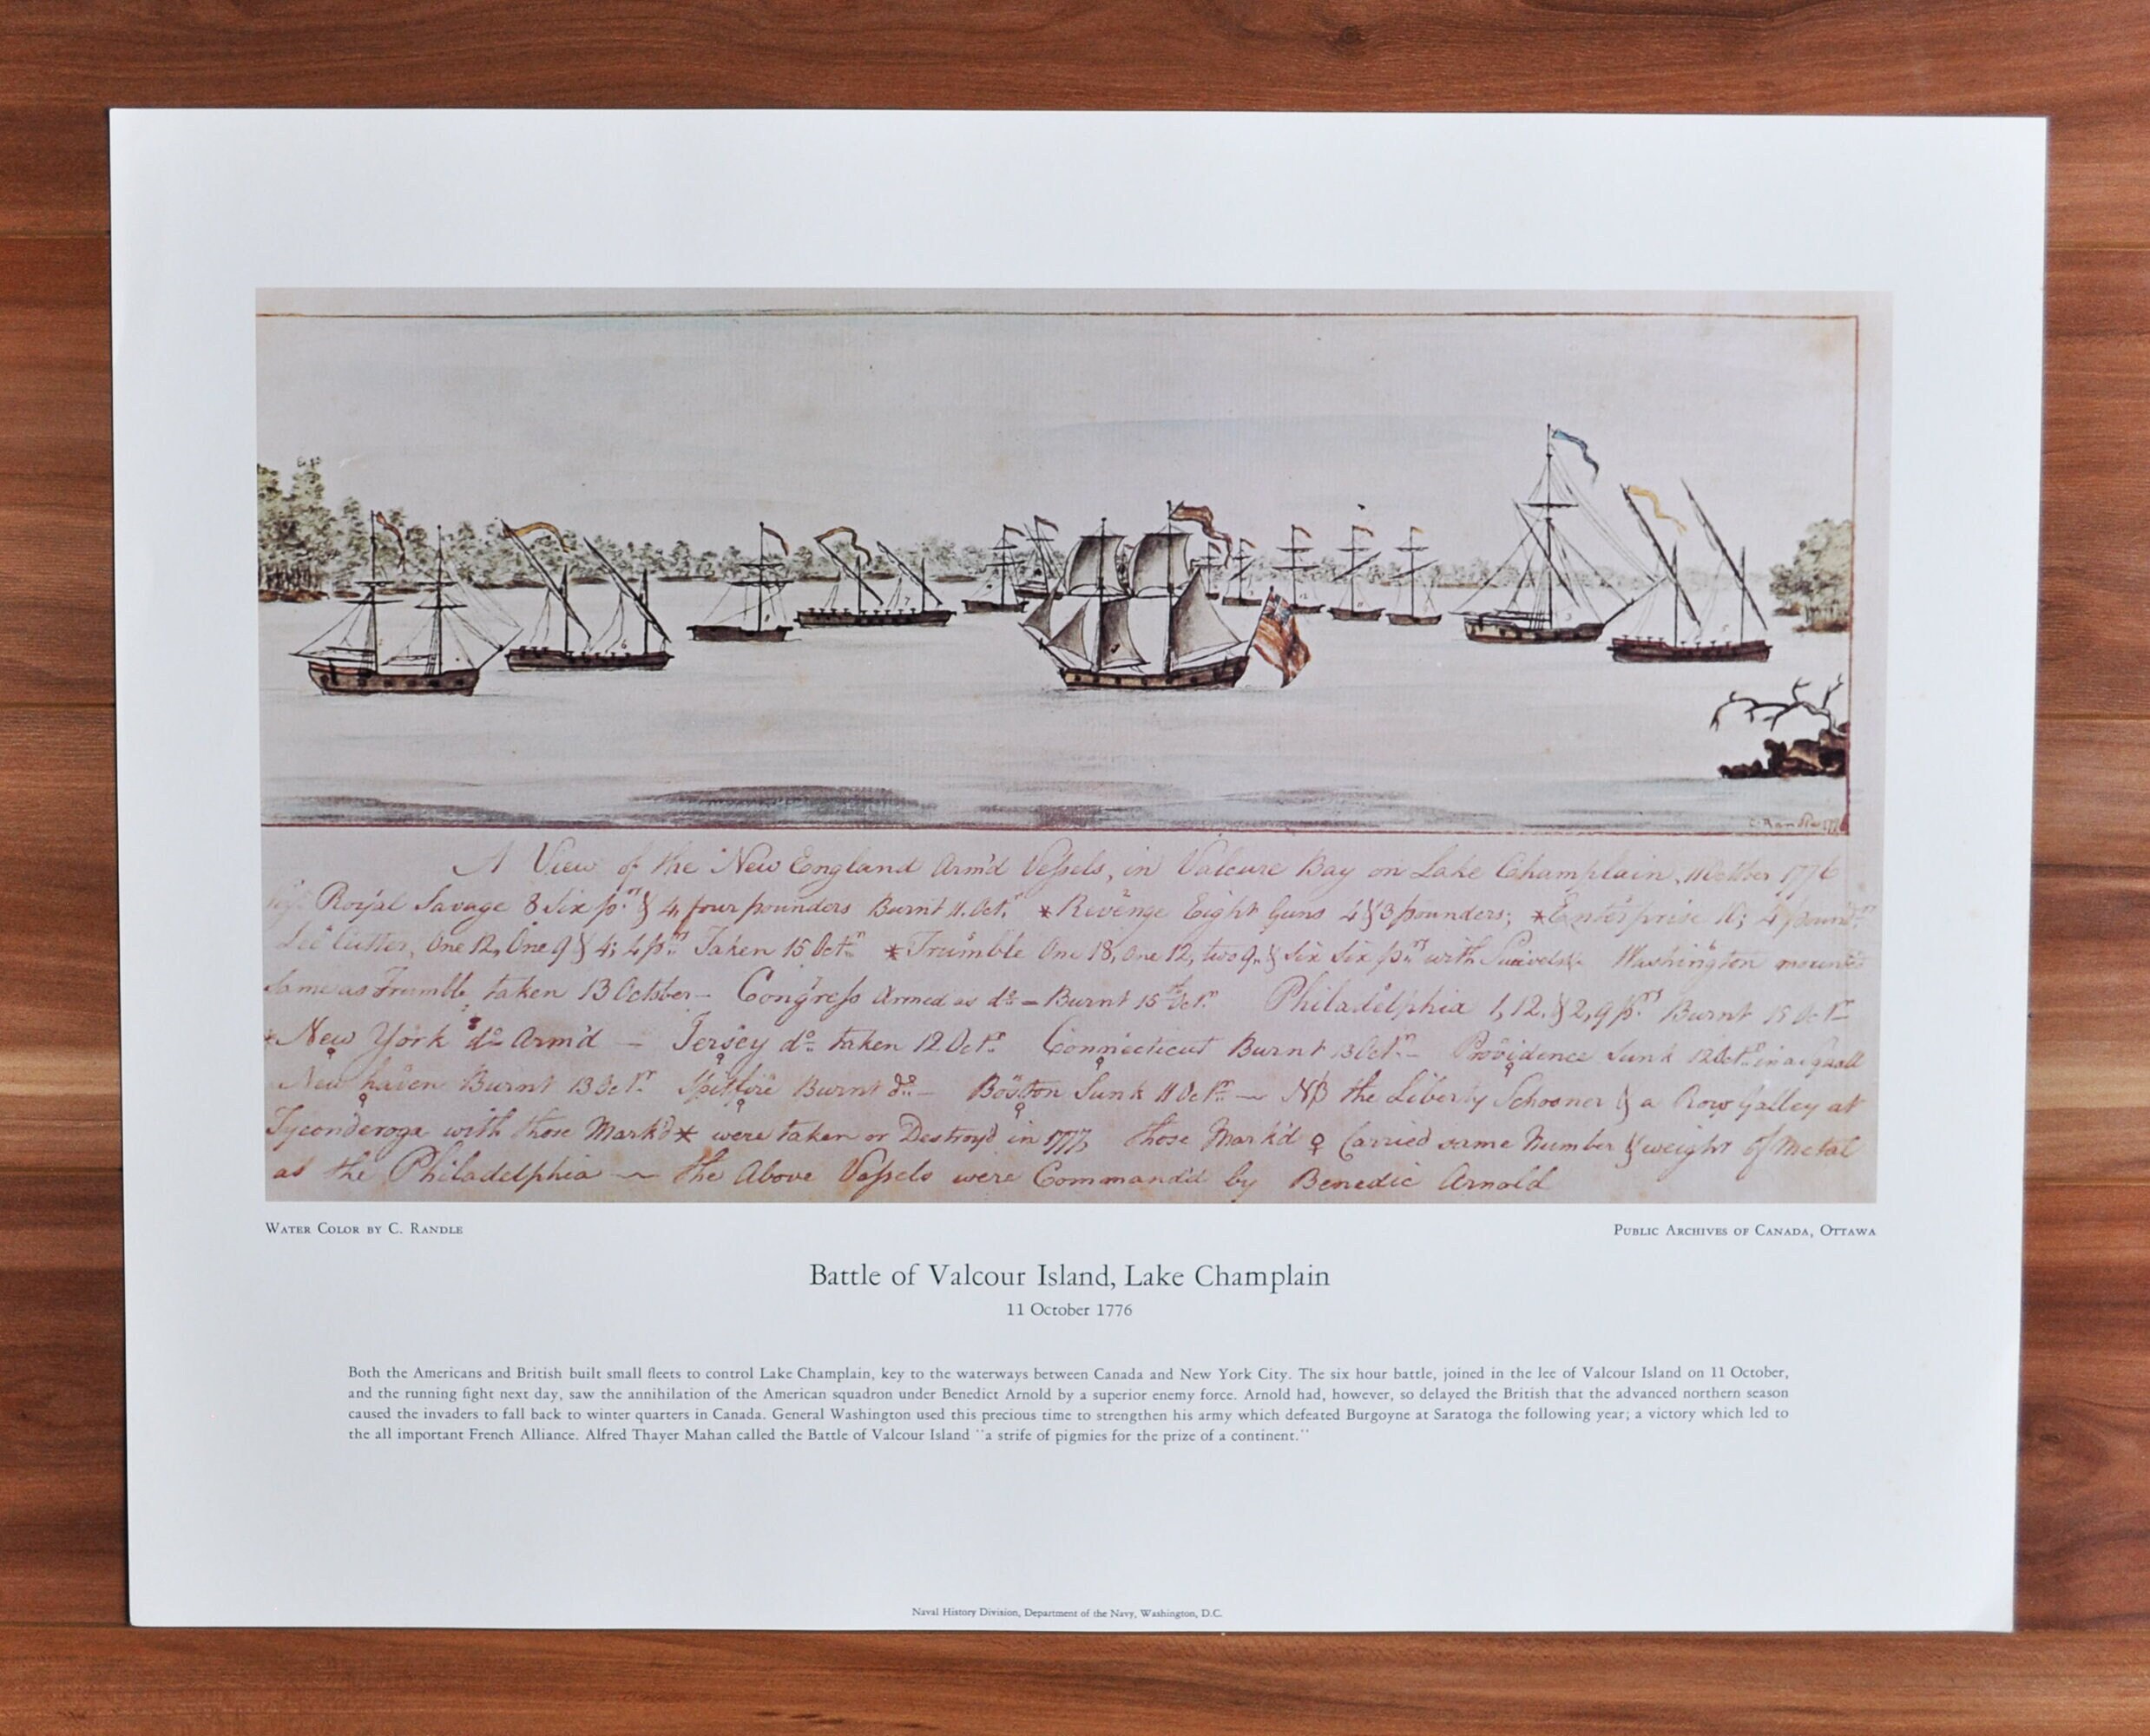 C. Randle 177
A View of the New England Arm'd Veſsels, in Valcure Bay on Lake Champlain, 11 October 1776
Royal Savage 8 Six prs & 4, four pounders Burnt 11. Octr *Revenge Eight Guns 4 & 3 pounders; *Enterprise 10; 4 pound
Lee Cutter, One 12, One 9 & 4; 4 prs Taken 15 Octr *Trumble One 18, One 12, two 9, & Six Six prs with Swivels; Washington mounted
Same as Trumble taken 13 October - Congreſs Armed as do - Burnt 15th Octr Philadelphia 1, 12, & 2, 9 prs Burnt 15 Octr
*New York do Arm'd - Jersey do taken 12 Octr Connecticut Burnt 13 Octr - Providence Sunk 12 Octr in a Squall
New haven Burnt 13 Octr Spitfire Burnt do - Boston Sunk 11 Octr - NB the Liberty Schooner & a Row Galley at
Tyconderoga with those Mark'd * were taken or Destroy'd in 1777, those Mark'd ♀ Carried same Number & weight of Metal
as the Philadelphia - the Above Veſsels were Command'd by Benedic Arnold
Water Color by C. Randle
Public Archives of Canada, Ottawa
Battle of Valcour Island, Lake Champlain
11 October 1776
Both the Americans and British built small fleets to control Lake Champlain, key to the waterways between Canada and New York City. The six hour battle, joined in the lee of Valcour Island on 11 October,
and the running fight next day, saw the annihilation of the American squadron under Benedict Arnold by a superior enemy force. Arnold had, however, so delayed the British that the advanced northern season
caused the invaders to fall back to winter quarters in Canada. General Washington used this precious time to strengthen his army which defeated Burgoyne at Saratoga the following year; a victory which led to
the all important French Alliance. Alfred Thayer Mahan called the Battle of Valcour Island "a strife of pigmies for the prize of a continent."
Naval History Division, Department of the Navy, Washington, D.C.